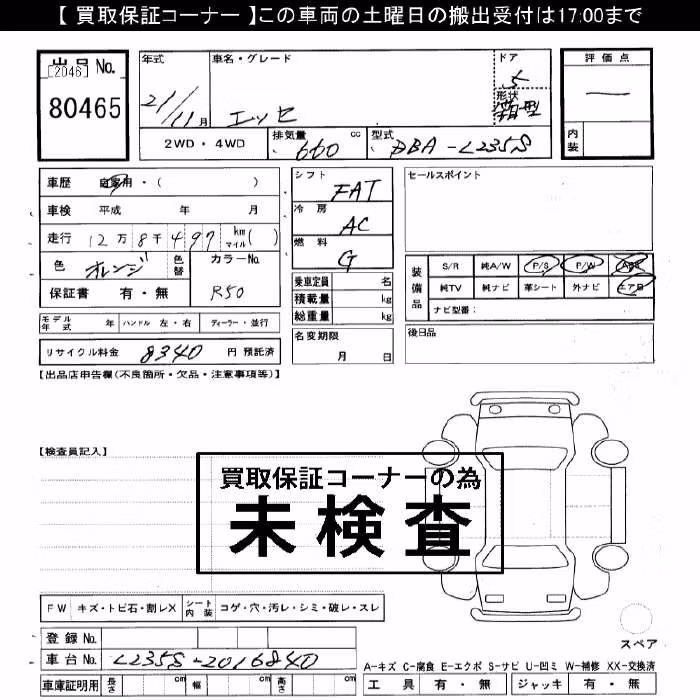 【 買取保証コーナー 】この車両の土曜日の搬出受付は17:00まで
出品 No.
[2046]
80465
年式
21/11月
車名・グレード
エッセ
ドア
5
形状
箱型
2WD・4WD
排気量 660 cc
型式 DBA-L235S
評価点
―
内装
車歴 自家用・( )
車検 平成 年 月
走行 12万8千497 km マイル( )
色 オレンジ
色替
カラーNo.
R50
保証書 有・無
モデル年式 年
ハンドル 左・右
ディーラー・並行
リサイクル料金 8340 円 預託済
シフト
FAT
冷房
AC
燃料
G
乗車定員 名
積載量 kg
総重量 kg
名変期限
月 日
セールスポイント
装備品
S/R 純A/W P/S P/W ABS
純TV 純ナビ 革シート 外ナビ エアB
ナビ型番:
後日品
【出品店申告欄(不良箇所・欠品・注意事項等)】
【検査員記入】
買取保証コーナーの為
未検査
FW キズ・トビ石・割レX
シート内装 コゲ・穴・汚レ・シミ・破レ・スレ
登録 No.
車台 No. L235S-2016840
車庫証明用 長さ cm 幅 cm 高さ cm
スペア
A-キズ C-腐食 E-エクボ S-サビ U-凹ミ W-補修 XX-交換済
工具 有・無 ジャッキ 有・無